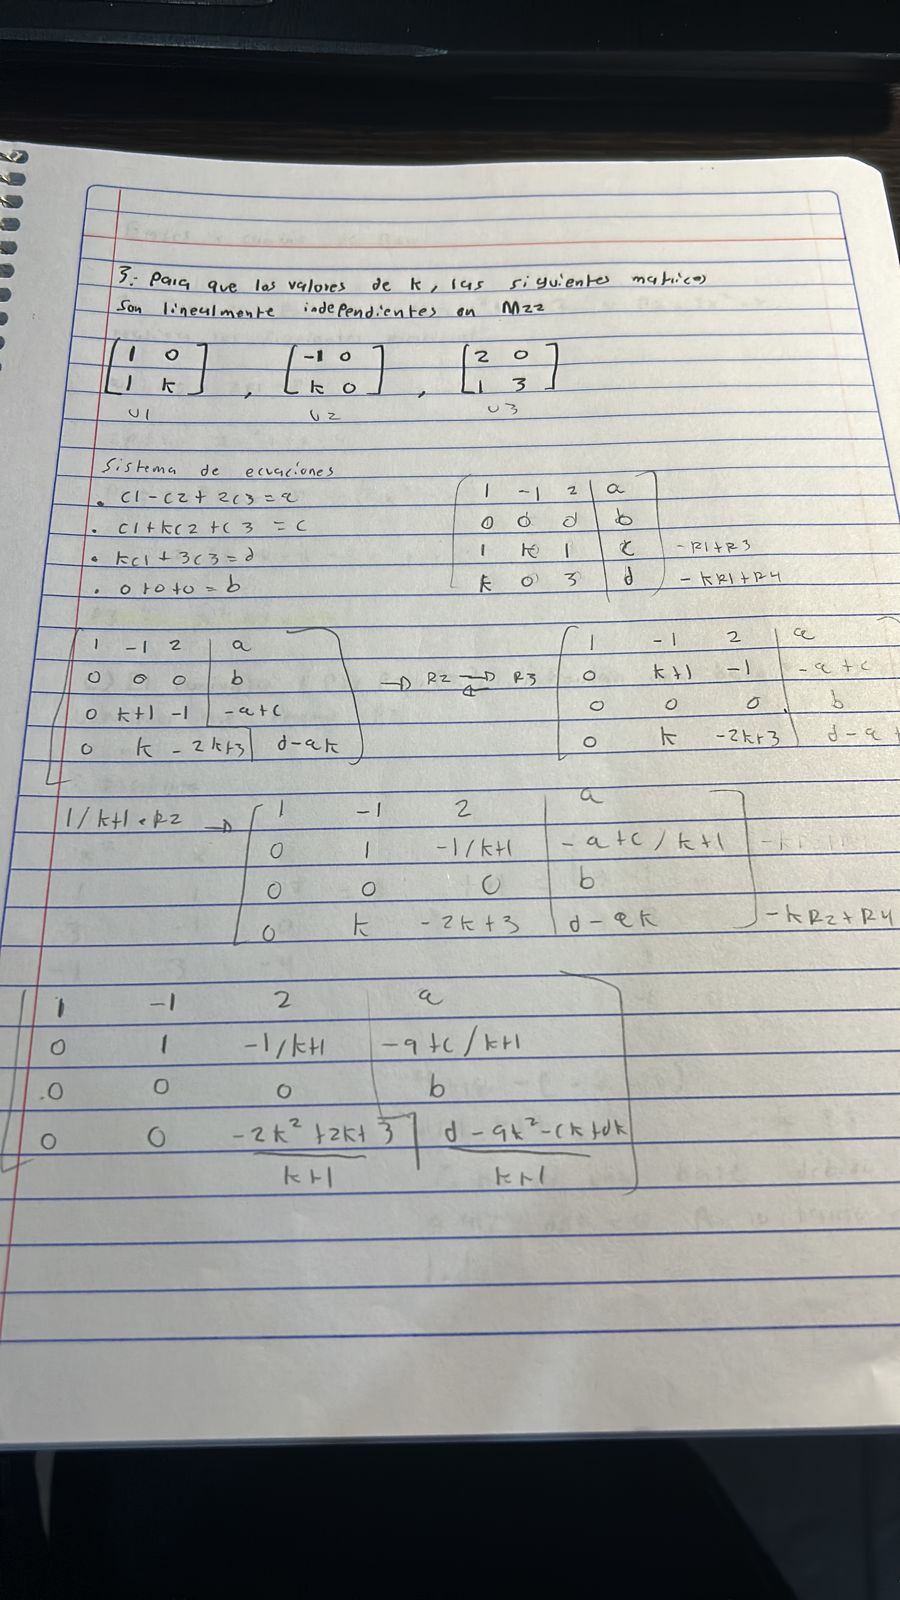 3.- Para que los valores de k, las siguientes matrices
son linealmente independientes en M22
[1 0] , [-1 0] , [2 0]
[1 k] [k 0] [1 3]
U1 U2 U3
Sistema de ecuaciones
. C1-C2+2C3=a
. C1+kC2+C3=c
. kC1+3C3=d
. 0+0+0=b
1 -1 2 | a
0 0 0 | b
1 k 1 | c -R1+R3
k 0 3 | d -kR1+R4
1 -1 2 | a
0 0 0 | b
0 k+1 -1 | -a+c
0 k -2k+3 | d-ak
→ R2 ⇄ R3
1 -1 2 | a
0 k+1 -1 | -a+c
0 0 0 | b
0 k -2k+3 | d-a
1/k+1 · R2 →
1 -1 2 | a
0 1 -1/k+1 | -a+c/k+1
0 0 0 | b
0 k -2k+3 | d-ak -kR2+R4
1 -1 2 | a
0 1 -1/k+1 | -a+c/k+1
0 0 0 | b
0 0 -2k²+2k+3 | d-ak²-ck+dk
k+1 k+1